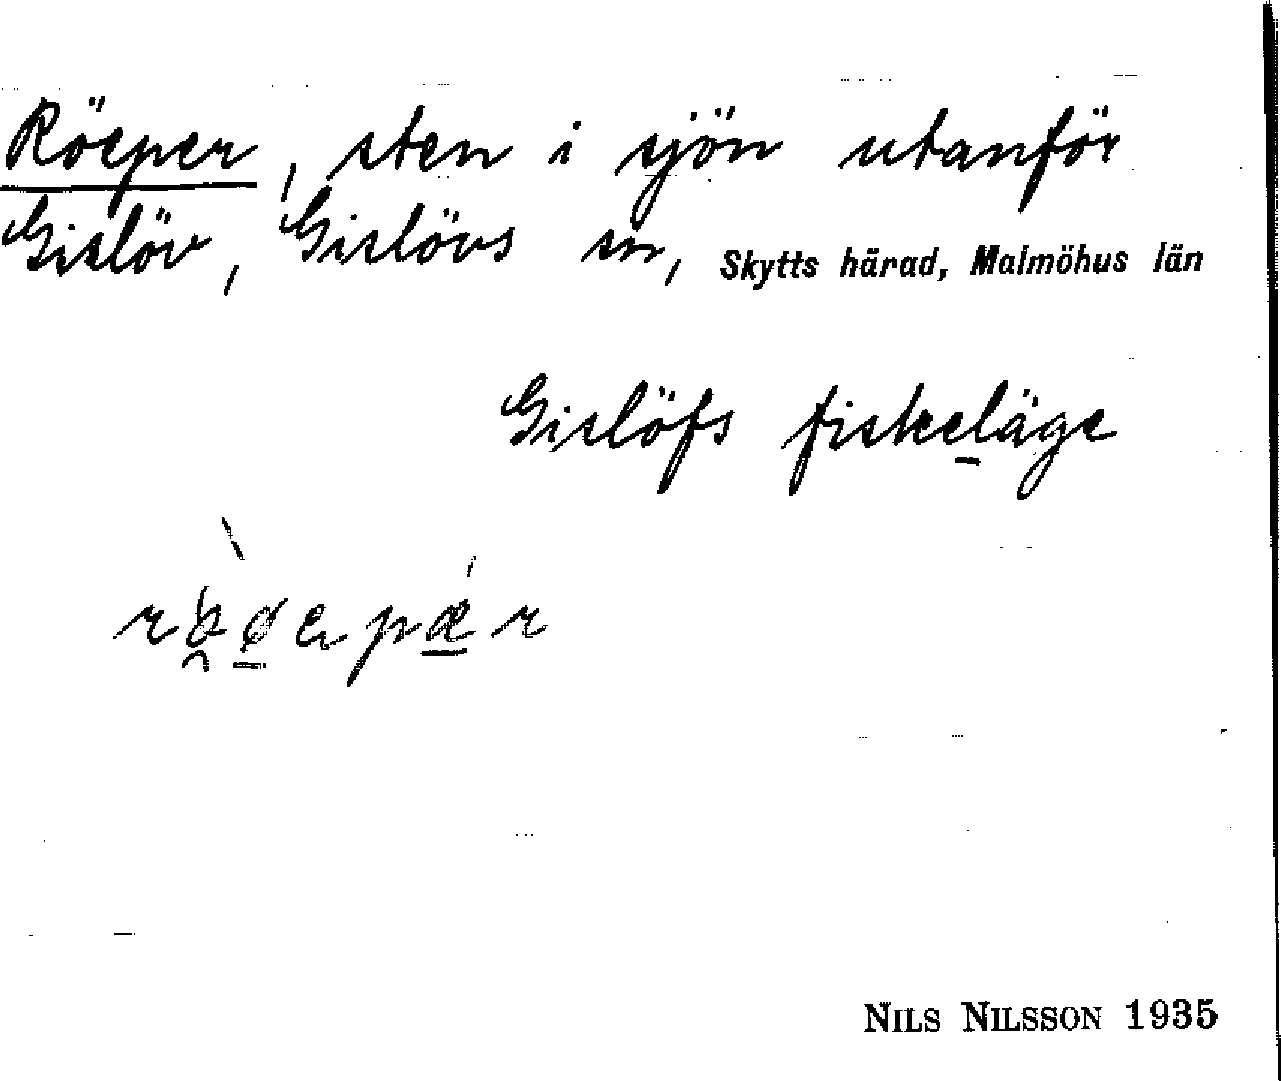 Röeper, sten i sjön utanför
Gislöv, Gislövs sn, Skytts härad, Malmöhus län
Gislöfs fiskeläge
NILS NILSSON 1935